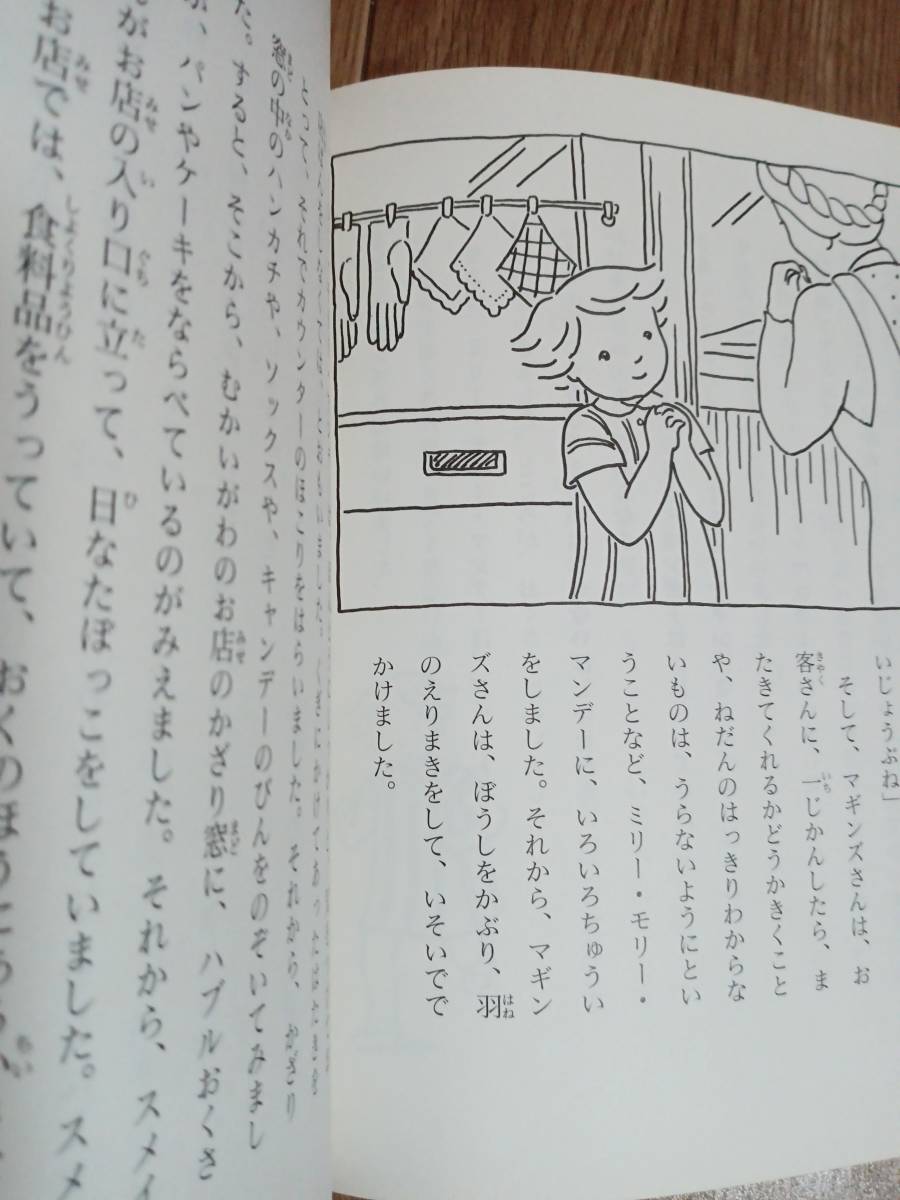 いじょうぶね」
そして、マギンズさんは、お
客さんに、一じかんしたら、ま
たきてくれるかどうかきくこと
や、ねだんのはっきりわからな
いものは、うらないようにとい
うことなど、ミリー・モリー・
マンデーに、いろいろちゅうい
をしました。それから、マギン
ズさんは、ぼうしをかぶり、羽
のえりまきをして、いそいでで
かけました。
とって、それでカウンターのほこりをはらいました。それから、かざり
窓の中のハンカチや、ソックスや、キャンデーのびんをのぞいてみまし
た。すると、そこから、むかいがわのお店のかざり窓に、ハブルおくさ
が、パンやケーキをならべているのがみえました。それから、スメイ
がお店の入り口に立って、日なたぼっこをしていました。スメ
お店では、食料品をうっていて、おくのほうに